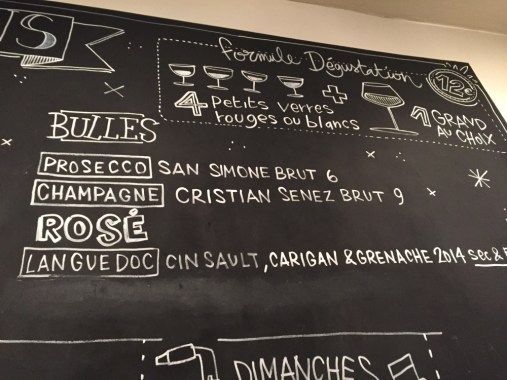 Formule Dégustation
12€
4 Petits verres
rouges ou blancs
+
1 GRAND
AU CHOIX
BULLES
PROSECCO SAN SIMONE BRUT 6
CHAMPAGNE CRISTIAN SENEZ BRUT 9
ROSÉ
LANGUEDOC CINSAULT, CARIGAN & GRENACHE 2014 sec &
DIMANCHES